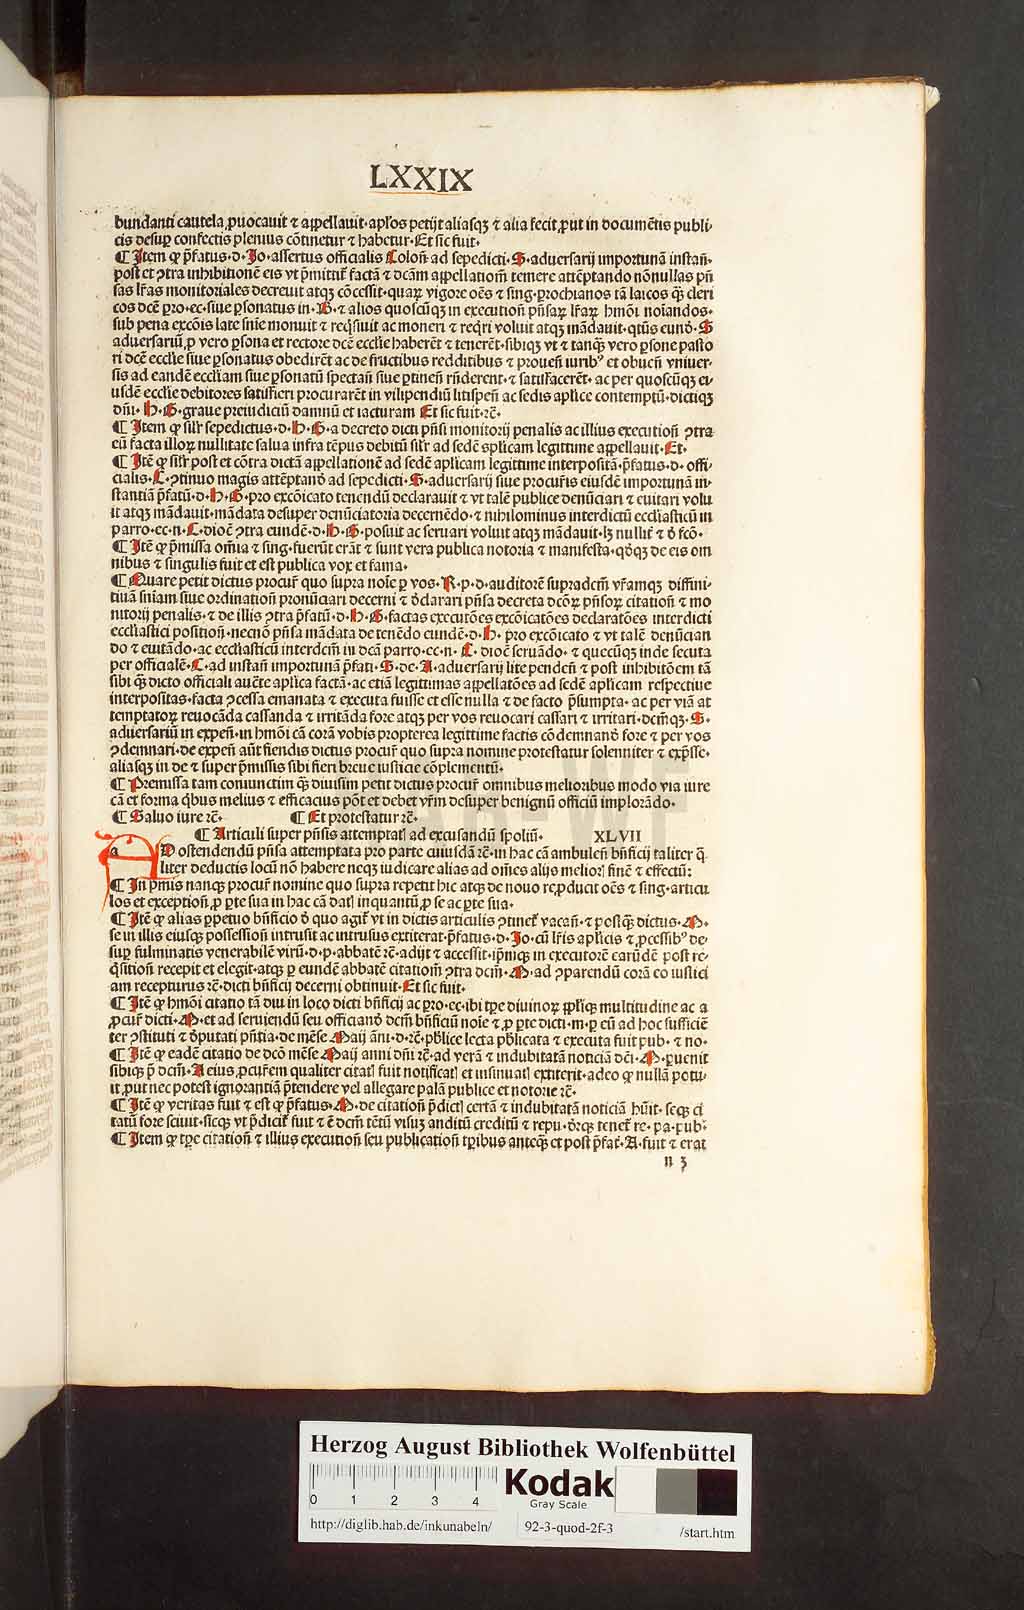 LXXIX
bundanti cautela ꝓuocauit ⁊ aꝑpellauit· apl̄os petijt aliasqꝫ ⁊ alia fecit ꝓut in documētis publi⸗
cis desuꝑ confectis plenius cōtinetur ⁊ habetur· Et sic fuit·
¶ Item ꝙ p̄fatus·d·Jo·assertus officialis Colon̄ ad sepedicti·S·aduersarij importunā instan̄·
post et ꝯtra inhibitionē eis vt p̄mittit̄ factā ⁊ dc̄am appellatiom̄ temere attēptando nōnullas pn̄
sas lr̄as monitoriales decreuit atqꝫ cōcessit· quaꝝ vigore oēs ⁊ sing· ꝑrochianos tā laicos qꝫ cleri
cos dcē ꝑro·ec·siue ꝑsonatus in·B·⁊ alios quoscūqꝫ in execution̄ pn̄saꝝ lr̄aꝝ hmōi noīandos·
sub pena excōis late snīe monuit ⁊ reqͥsiuit ac moneri ⁊ reqͥri voluit atqꝫ mādauit· qtūs eund̄·S
aduersariū ꝓ vero ꝑsona et rectore dcē ecclīe haberēt ⁊ tenerēt· sibiqꝫ vt ⁊ tanqꝫ vero ꝑsone pasto
ri dcē ecclīe siue ꝑsonatus obedirēt ac de fructibus redditibus ⁊ prouen̄ iuribꝰ et obuen̄ vniuer⸗
sis ad eandē eccliam siue ꝑsonatū spectan̄ siue ꝑtinen̄ rn̄derent·⁊ satisfacerēt· ac per quoscūqꝫ ei⸗
usdē ecclīe debitores satisfieri procurarēt in vilipendiū litispen̄ ac sedis aplīce contemptū· dictiqꝫ
dn̄i·H·G·graue preiudiciū damnū et iacturam Et sic fuit·rc̄·
¶ Item ꝙ sil̄r sepedictus·d·H·G·a decreto dicti pn̄si monitorij penalis ac illius execution̄ ꝯtra
eū facta illoꝝ nullitate salua infra tēpus debitū sil̄r ad sedē aplicam legittime appellauit·Et·
¶ Itē ꝙ sil̄r post et cōtra dictā appellationē ad sedē aplicam legittime interpositā· p̄fatus·d·offi⸗
cialis·C·ꝯtinuo magis attēptand̄ ad sepedicti·S·aduersarij siue procur̄is eiusdē importunā in⸗
stantiā p̄fatū·d·H·G·pro excōicato tenendū declarauit ⁊ vt talē publice denūciari ⁊ euitari volu
it atqꝫ mādauit· mādata desuper denūciatoria decernēdo·⁊ nihilominus interdictū ecclīasticū in
parro·ec·n·C·dioc̄ ꝯtra eundē·d·H·G·posuit ac seruari voluit atqꝫ mādauit· lꝫ nullit̄ ⁊ d̄ fcō·
¶ Itē ꝙ p̄missa om̄ia ⁊ sing·fuerūt erāt ⁊ sunt vera publica notoria ⁊ manifesta· qd̄qꝫ de eis om
nibus ⁊ singulis fuit et est publica vox et fama·
¶ Quare petit dictus procur̄ quo supra noīe ꝑ vos·R·p·d·auditorē supradcm̄ vr̄amqꝫ diffini⸗
tiuā sn̄iam siue ordination̄ pronūciari decerni ⁊ d̄clarari pn̄sa decreta dcōꝝ pn̄soꝝ citation̄ ⁊ mo
nitorij penalis·⁊ de illis ꝯtra p̄fatū·d·H·G·factas executōes excōicatōes declaratōes interdicti
ecclīastici position̄· necnō pn̄sa mādata de tenēdo eundē·d·H· pro excōicato ⁊ vt talē denūcian
do ⁊ euitādo· ac ecclīasticū interdcm̄ in dcā parro·ec·n·C·dioc̄ seruādo·⁊ quecūqꝫ inde secuta
per officialē·C·ad instan̄ importunā p̄fati·S·de·A·aduersarij lite penden̄ ⁊ post inhibitōem tā
sibi qꝫ dicto officiali aucte aplīca factā· ac etiā legittimas appellatōes ad sedē aplicam respectiue
interpositas· facta ꝯcessa emanata ⁊ executa fuisse et esse nulla ⁊ de facto p̄sumpta· ac per viā at
temptatoꝝ reuocāda cassanda ⁊ irritāda fore atqꝫ per vos reuocari cassari ⁊ irritari· dcm̄qꝫ·S·
aduersariū in expen̄· in hmōi cā corā vobis propterea legittime factis cōdemnand̄ fore ⁊ per vos
ꝯdemnari· de expen̄ aūt fiendis dictus procur̄ quo supra nomine protestatur solenniter ⁊ exp̄sse·
aliasqꝫ in de ⁊ super p̄missis sibi fieri breue iusticie cōplementū·
¶ Premissa tam coniunctim qꝫ diuisim petit dictus procur̄ omnibus melioribus modo via iure
cā et forma qͥbus melius ⁊ efficacius pōt et debet vr̄m desuper benignū officiū implorādo·
¶ Saluo iure rc̄· ¶ Et protestatur rc̄·
¶ Articuli super pn̄sis attemptatꝭ ad excusandū spoliū· XLVII
aD ostendendū pn̄sa attemptata pro parte cuiusdā rc̄·in hac cā ambulen̄ bn̄ficij taliter q̄
liter deductis locū nō habere neqꝫ iudicare alias ad om̄es alijs melioꝝ finē ⁊ effectū:
¶ In p̄mis nanqꝫ procur̄ nomine quo supra repetit hic atqꝫ de nouo reꝓducit oēs ⁊ sing·articu
los et exception̄ ꝓ ꝑte sua in hac cā datꝭ inquantū ꝓ se ac ꝑte sua·
¶ Itē ꝙ alias ꝑpetuo bn̄ficio d̄ quo agit̄ vt in dictis articulis ꝯtinet̄ vacan̄·⁊ postqꝫ dictus·M·
se in illis eiusqꝫ possession̄ intrusit ac intrusus extiterat· p̄fatus·d·Jo·cū lr̄is aplīcis ⁊ ꝓcessibꝰ de⸗
suꝑ fulminatis venerabilē virū·d·p·abbatē rc̄·adijt ⁊ accessit· ip̄mqꝫ in executorē earūdē post re⸗
qͥsition̄ recepit et elegit· atqꝫ ꝑ eundē abbatē citatiom̄ ꝯtra dcm̄·M·ad ꝯparendū corā eo iustici
am recepturus rc̄·dicti bn̄ficij decerni obtinuit·Et sic fuit·
¶ Itē ꝙ hmōi citatio tā diu in loco dicti bn̄ficij ac ꝑro·ec·ibi tꝑe diuinoꝝ ꝓpl̄iqꝫ multitudine ac a
ꝓcur̄ dicti·M·et ad seruiendū seu officiand̄ dcm̄ bn̄ficiū noīe ⁊ ꝓ ꝑte dicti·m·ꝑ eū ad hoc sufficiē
ter ꝯstituti ⁊ d̄putati pn̄tia·de mēse Maij ān̄i·d·rc̄·pb̄lice lecta pb̄licata ⁊ executa fuit pub·⁊ no·
¶ Itē ꝙ eadē citatio de dcō mēse Maij anni dn̄i rc̄·ad verā ⁊ indubitatā noticiā dc̄i·M·ꝑuenit
sibiqꝫ p̄ dcm̄·A eius ꝓcur̄em qualiter citatꝭ fuit notificatꝭ et insinuatꝭ extiterit· adeo ꝙ nullā potu⸗
it ꝓut nec potest ignorantiā p̄tendere vel allegare palā publice et notorie rc̄·
¶ Itē ꝙ veritas fuit ⁊ est ꝙ p̄fatus·M·de citation̄ p̄dictꝭ certā ⁊ indubitatā noticiā hūit· seqꝫ ci
tatū fore sciuit· sicqꝫ vt p̄dicit̄ fuit ⁊ ē dcm̄ tētū visuꝫ auditū creditū ⁊ repu·d̄rqꝫ tenet̄ re·pa·pub·
¶ Item ꝙ tꝑe citation̄ ⁊ illius execution̄ seu publication̄ tꝑibus anteqꝫ et post p̄fat̄·A·fuit ⁊ erat
n 3
Herzog August Bibliothek Wolfenbüttel
0 1 2 3 4
Kodak
Gray Scale
http://diglib.hab.de/inkunabeln/ 92-3-quod-2f-3 /start.htm
HAB-WF